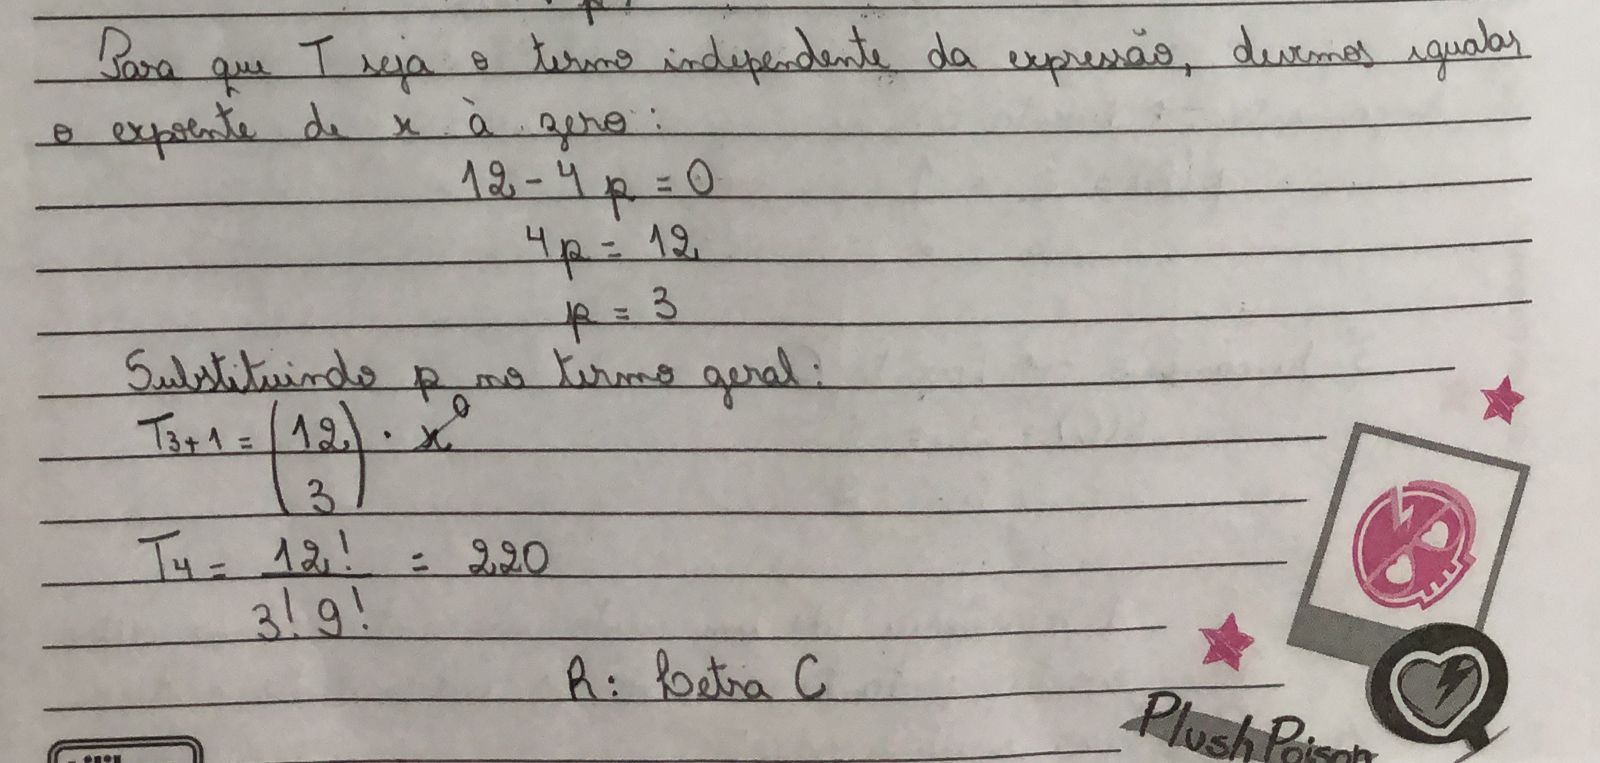 Para que T seja o termo independente da expressão, devemos igualar
o expoente de x à zero:
12 - 4p = 0
4p = 12
p = 3
Substituindo p no termo geral:
T3+1 = (12 3) . x^0
T4 = 12! / 3! 9! = 220
R: Letra C
Plush Poison